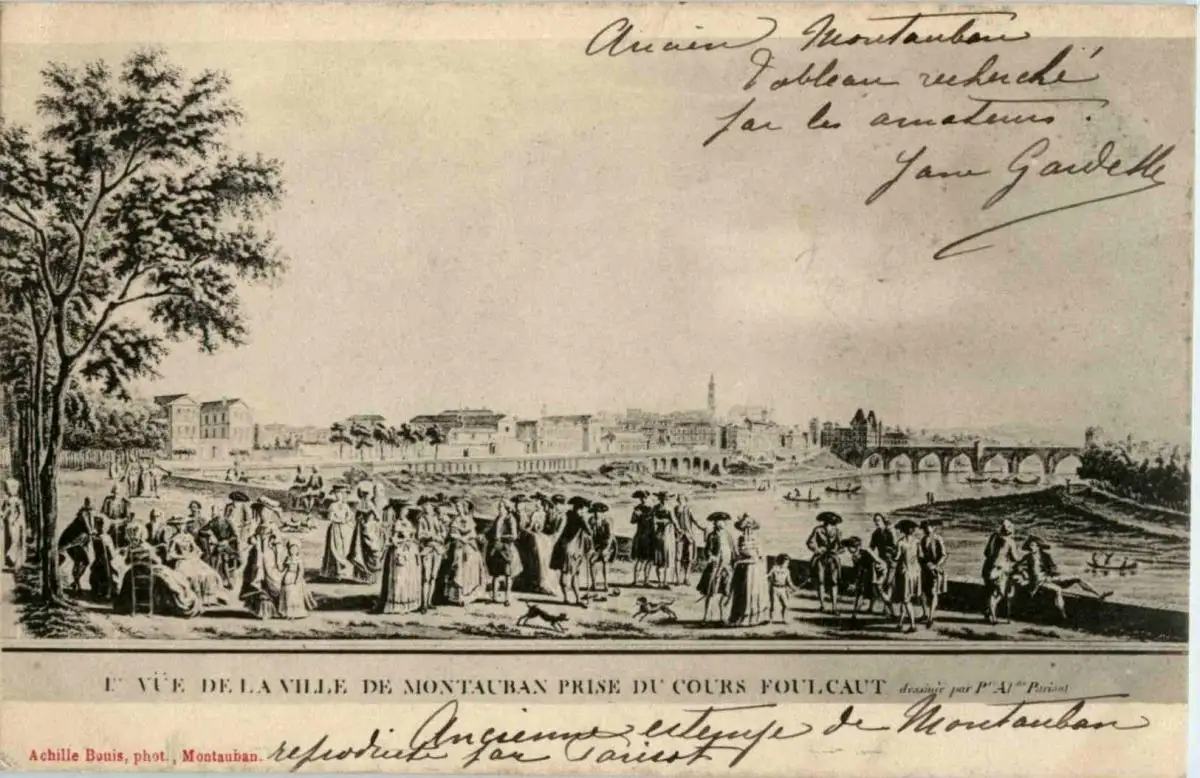 Ancien Montauban
Tableau recherché
par les amateurs.
Jane Gardelle
Ire VÜE DE LA VILLE DE MONTAUBAN PRISE DU COURS FOULCAUT dessinée par Pre Aldre Parisot
Ancienne estampe de Montauban
reproduite par Parisot
Achille Bouis, phot., Montauban.